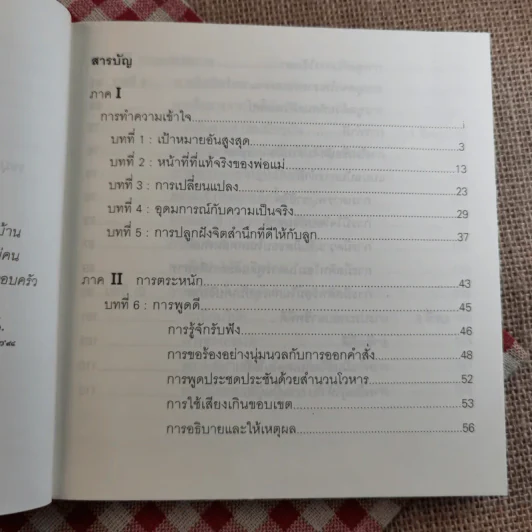 สารบัญ
ภาค I
การทำความเข้าใจ 1
บทที่ 1 : เป้าหมายอันสูงสุด 3
บทที่ 2 : หน้าที่ที่แท้จริงของพ่อแม่ 13
บทที่ 3 : การเปลี่ยนแปลง 23
บทที่ 4 : อุดมการณ์กับความเป็นจริง 29
บทที่ 5 : การปลูกฝังจิตสำนึกที่ดีให้กับลูก 37
ภาค II การตระหนัก 43
บทที่ 6 : การพูดดี 45
การรู้จักรับฟัง 46
การขอร้องอย่างนุ่มนวลกับการออกคำสั่ง 48
การพูดประชดประชันด้วยสำนวนโวหาร 52
การใช้เสียงเกินขอบเขต 53
การอธิบายและให้เหตุผล 56